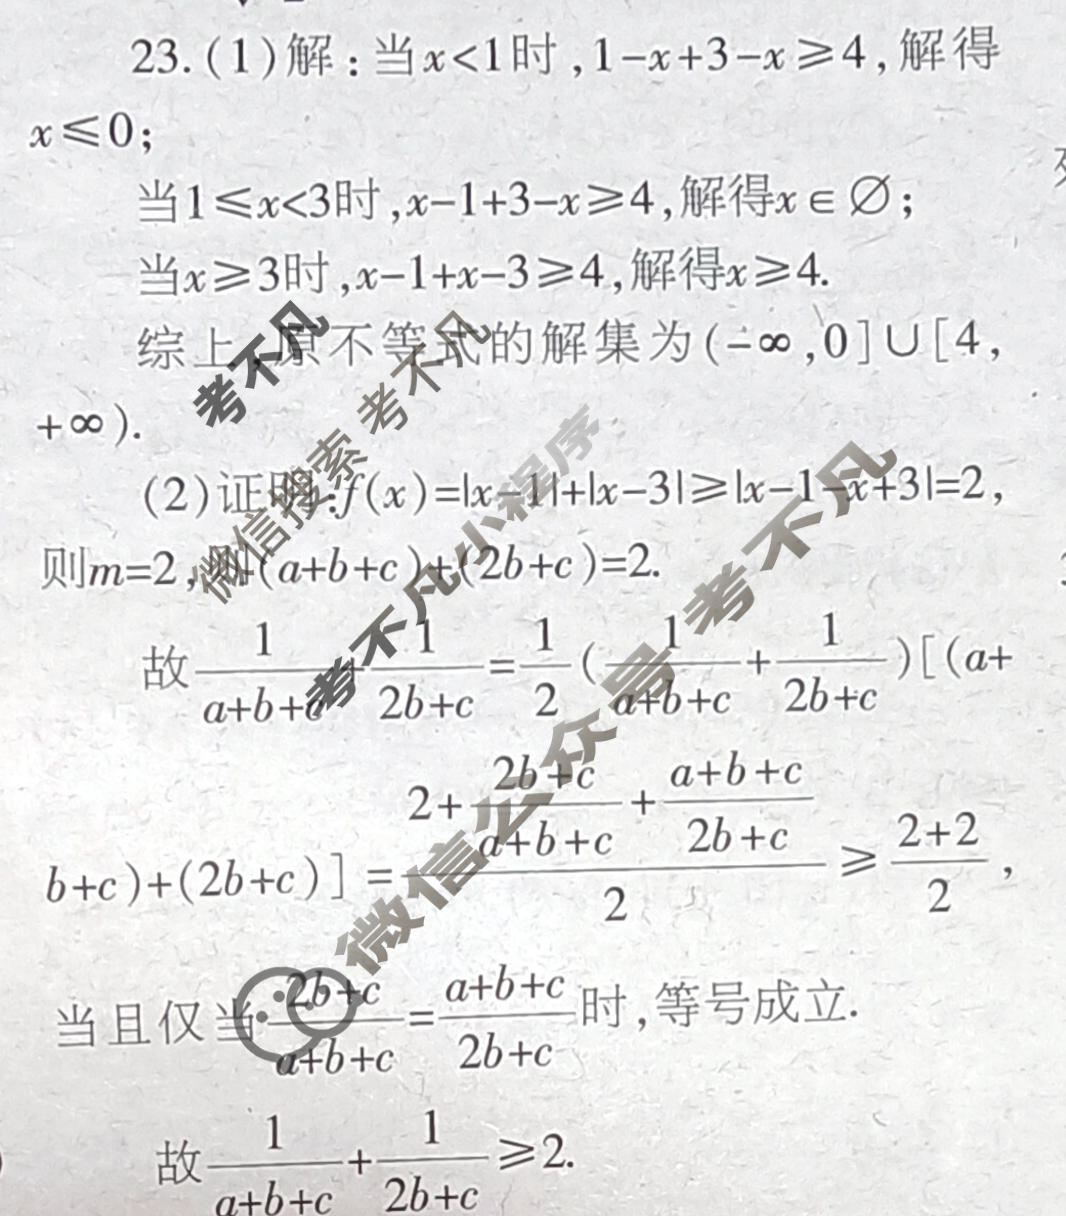 23.(1)解:当x<1时,1-x+3-x≥4,解得
x≤0;
当1≤x<3时,x-1+3-x≥4,解得x∈∅;
当x≥3时,x-1+x-3≥4,解得x≥4.
综上,原不等式的解集为(-∞,0]∪[4,
+∞).
(2)证明:f(x)=|x-1|+|x-3|≥|x-1-x+3|=2,
则m=2,则(a+b+c)+(2b+c)=2.
故1/(a+b+c)+1/(2b+c)=1/2(1/(a+b+c)+1/(2b+c))[(a+
b+c)+(2b+c)]=(2+(2b+c)/(a+b+c)+(a+b+c)/(2b+c))/2≥(2+2)/2,
当且仅当(2b+c)/(a+b+c)=(a+b+c)/(2b+c)时,等号成立.
故1/(a+b+c)+1/(2b+c)≥2.
考不凡
微信搜索 考不凡
考不凡小程序
微信公众号 考不凡